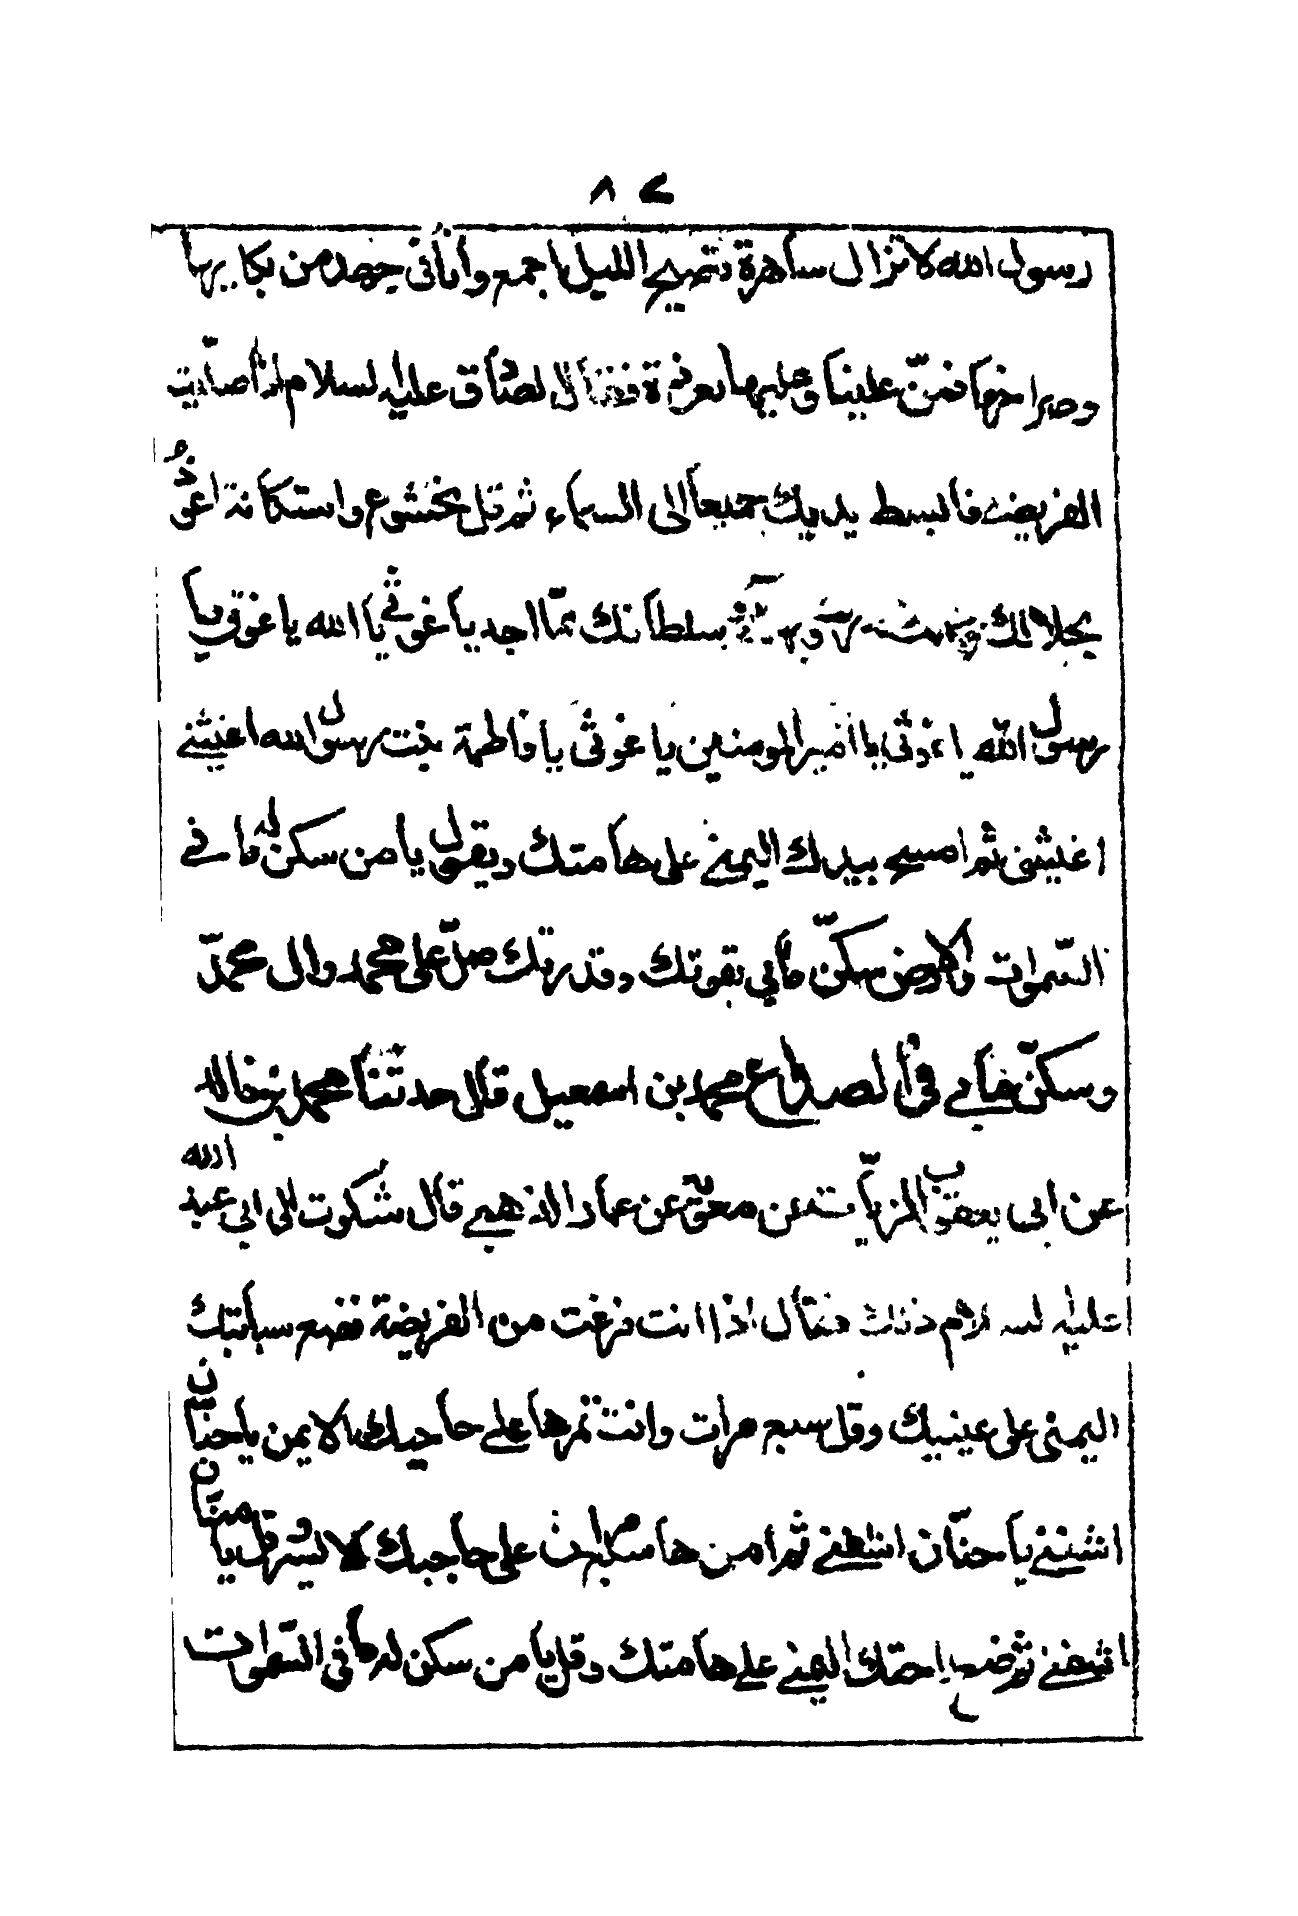 رسول الله لا تزال ساهرة تصيح الليل اجمع وانا في جهد من بكايها
وصراخها فمنّ علينا وعليها بعوذة فقال الصادق عليه السلام اذا صليت
الفريضة فابسط يديك جميعا الى السماء ثم قل بخشوع واستكانة اعوذ
بجلالك بسلطانك ممّا اجد يا غوثي يا الله يا غوثي يا
رسول الله يا غوثي يا امير المومنين يا غوثي يا فاطمة بنت رسول الله اغيثني
اغيثني ثم امسح بيدك اليمنى على هامتك ويقول يا من سكن له ما في
السّموات والارض سكّن ما بي بقوتك وقدرتك صلّ على محمد وال محمّد
وسكّن ما بي في الصداع محمد بن اسمعيل قال حدثنا محمد بن خالد
عن ابي يعقوب الزيّات عن معوية عن عمار الذهبي قال شكوت الى ابي عبد الله
عليه السلام ذلك فقال اذا انت فرغت من الفريضة فضع سبابتك
اليمنى على عينيك وقل سبع مرات وانت تمرها على حاجبك الايمن يا حنّان
اشفني يا حنّان اشفني ثم امرها سبع مرات على حاجبك الايسر وقل يا منّان
اشفني ثم ضع راحتك اليمنى على هامتك وقل يا من سكن له ما في السّموات